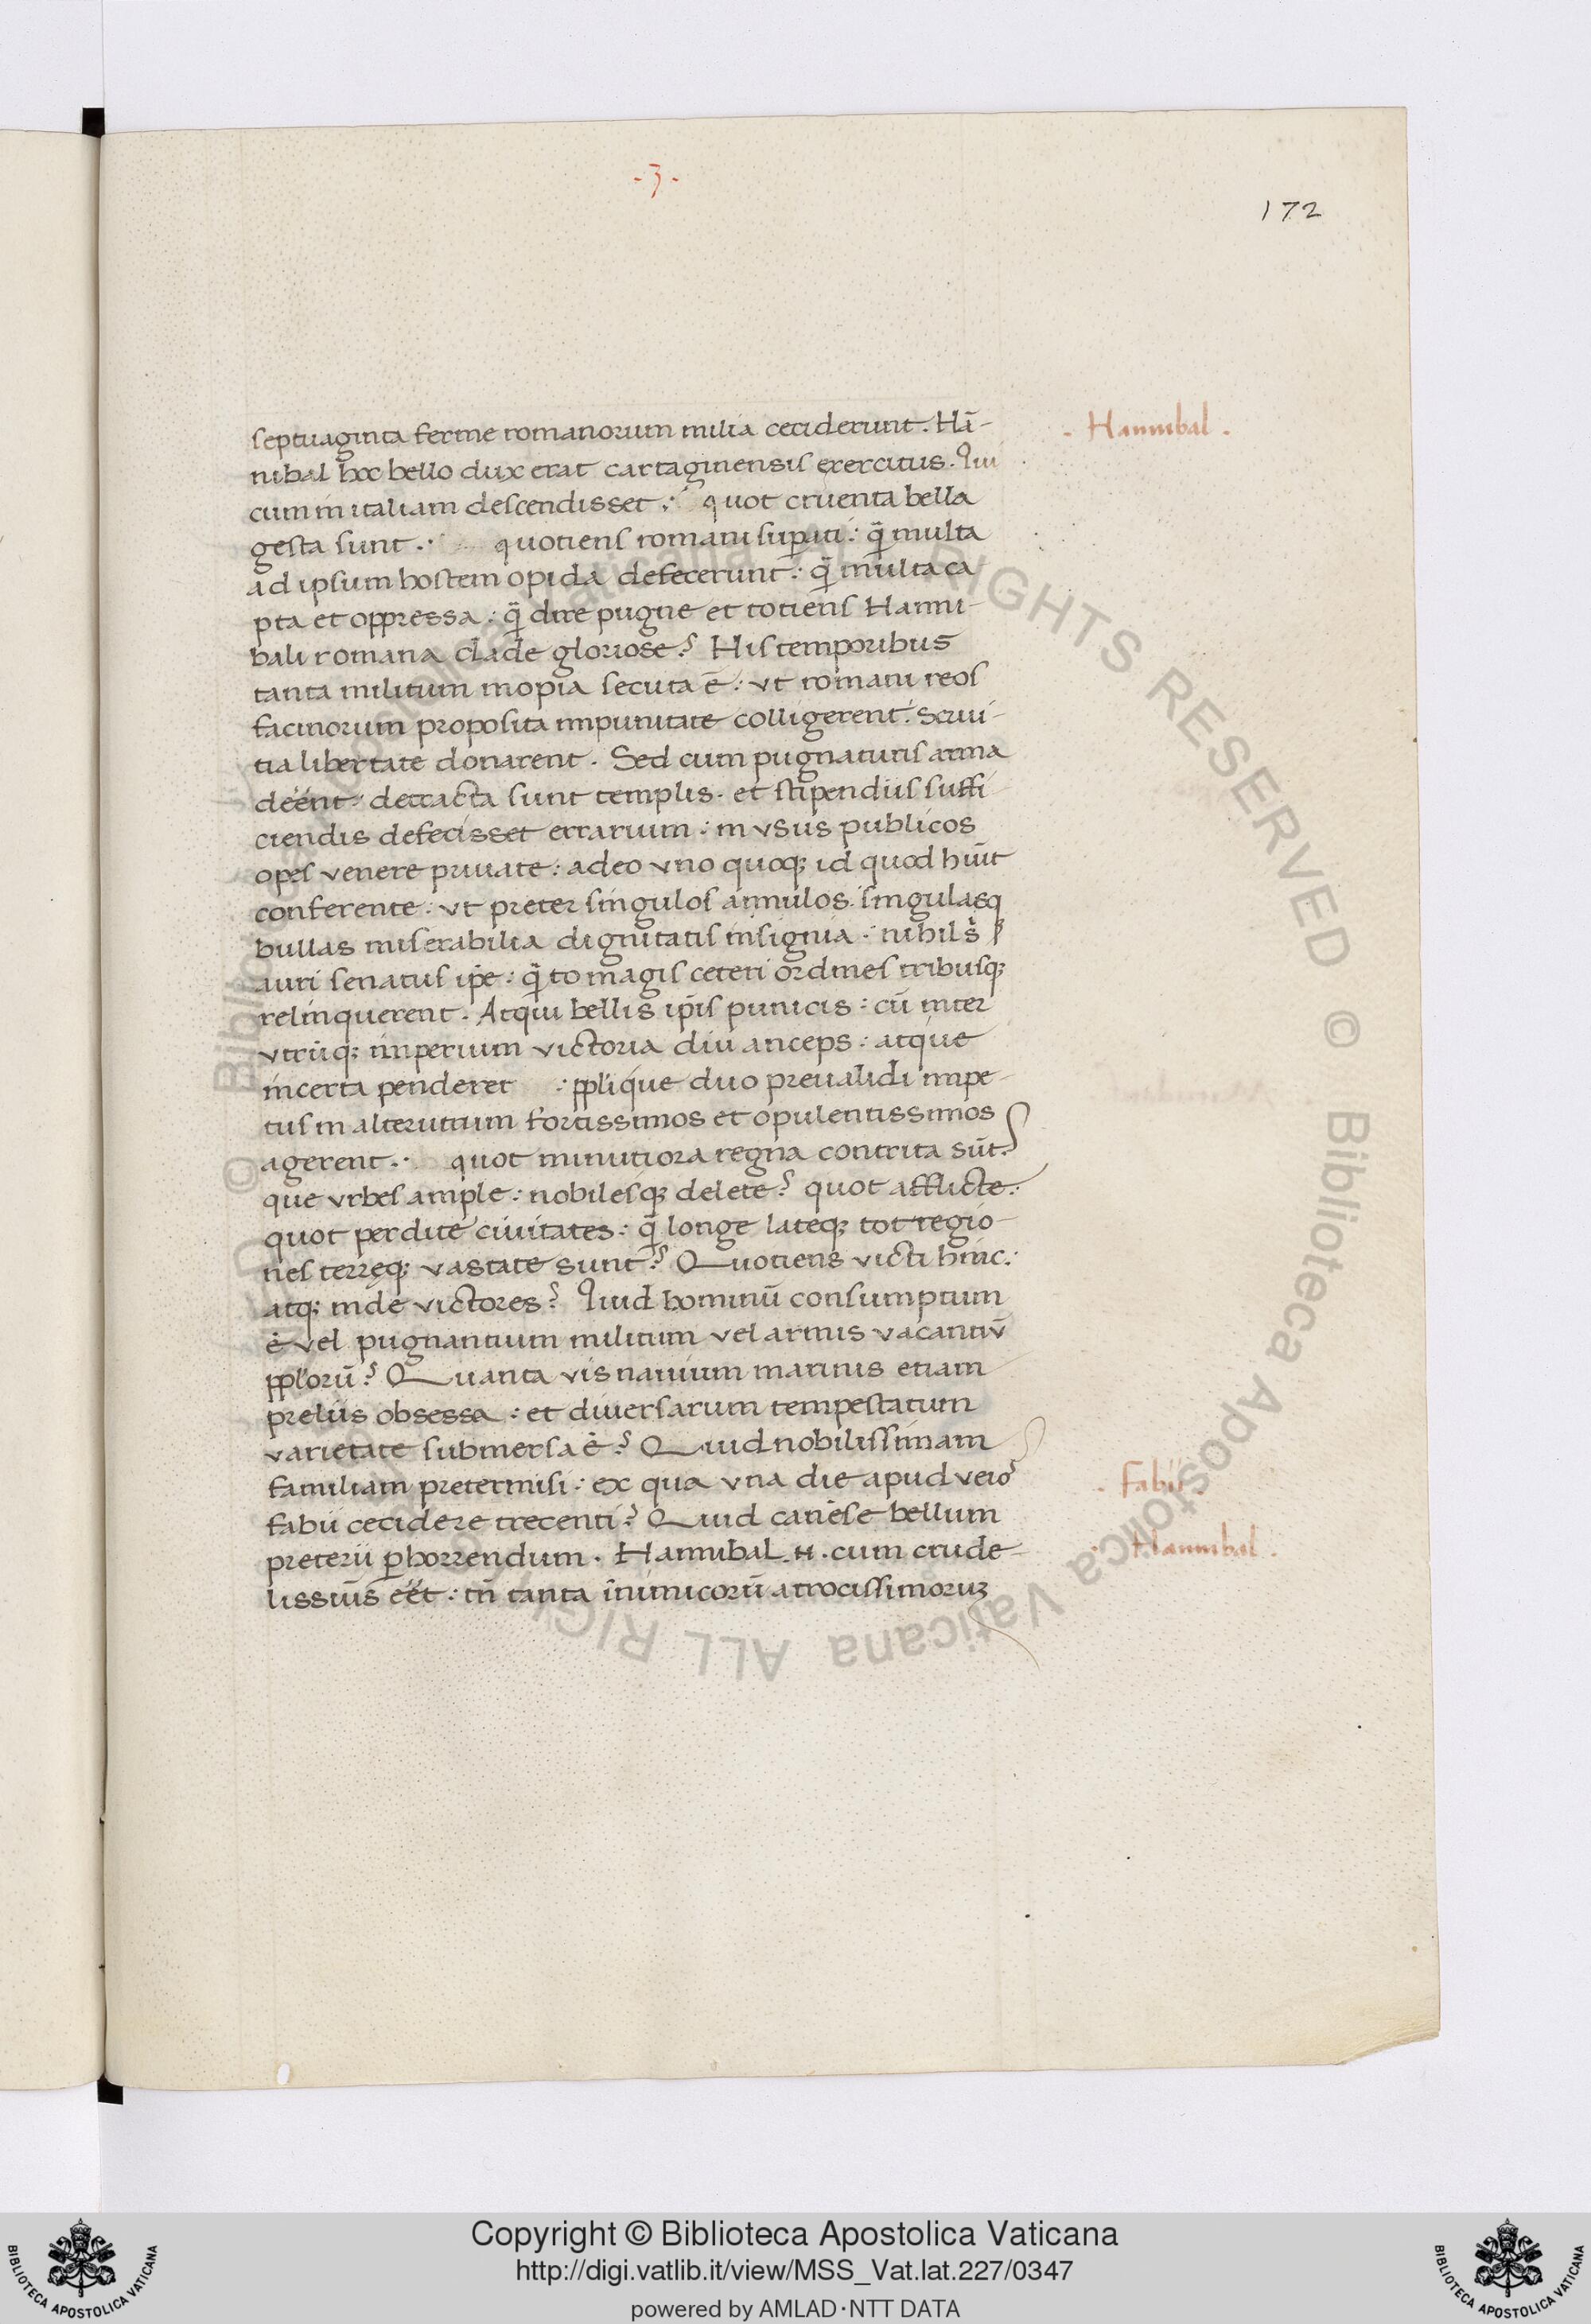 - 3 -
172
septuaginta ferme romanorum milia ceciderunt. Hā-
nibal hoc bello dux erat cartaginensis exercitus. Qui
cum in italiam descendisset: quot cruenta bella
gesta sunt. quotiens romani suꝑati: q̄ multa
ad ipsum hostem opida defecerunt: q̄ multa ca
pta et oppressa: q̄ dire pugne et totiens Hanni-
bali romana clade gloriose? His temporibus
tanta militum inopia secuta ē: vt romani reos
facinorum proposita impunitate colligerent: Serui-
tia libertate donarent. Sed cum pugnaturis arma
deēnt: detracta sunt templis. et stipendiis suffi
ciendis defecisset errarium: in vsus publicos
opes venere priuate: adeo vno quoq; id quod hūit
conferente: vt preter singulos annulos: singulasq
bullas miserabilia dignitatis insignia: nihil s
auri senatus ip̄e: q̄to magis ceteri ordines tribusq;
relinquerent. Atqui bellis ip̄is punicis: cū inter
vtrūq; imperium victoria diu anceps: atque
incerta penderet: pp̄lique duo preualidi impe-
tus in alterutrum fortissimos et opulentissimos
agerent. quot minutiora regna contrita sūt?
que vrbes ample: nobilesq; delete? quot afflicte:
quot perdite ciuitates: q̄ longe lateq; tot regio-
nes terręq; vastate sunt? Quotiens victi hinc:
atq; inde victores? Quid hominū consumptum
ē vel pugnantium militum vel armis vacantiū
pp̄lorū? Quanta vis nauium marinis etiam
preliis obsessa: et diuersarum tempestatum
varietate submersa ē? Quid nobilissimam
familiam pretermisi: ex qua vna die apud veios
fabii cecidere trecenti? Quid canēse bellum
preterii ꝑhorrendum. Hannibal .H. cum crude-
lissim̄s eēt: tn̄ tanta inimicorū atrocissimoruz
. Hannibal .
. Fabii .
. Hannibal .
Copyright © Biblioteca Apostolica Vaticana
http://digi.vatlib.it/view/MSS_Vat.lat.227/0347
powered by AMLAD·NTT DATA
BIBLIOTECA APOSTOLICA VATICANA
BIBLIOTECA APOSTOLICA VATICANA